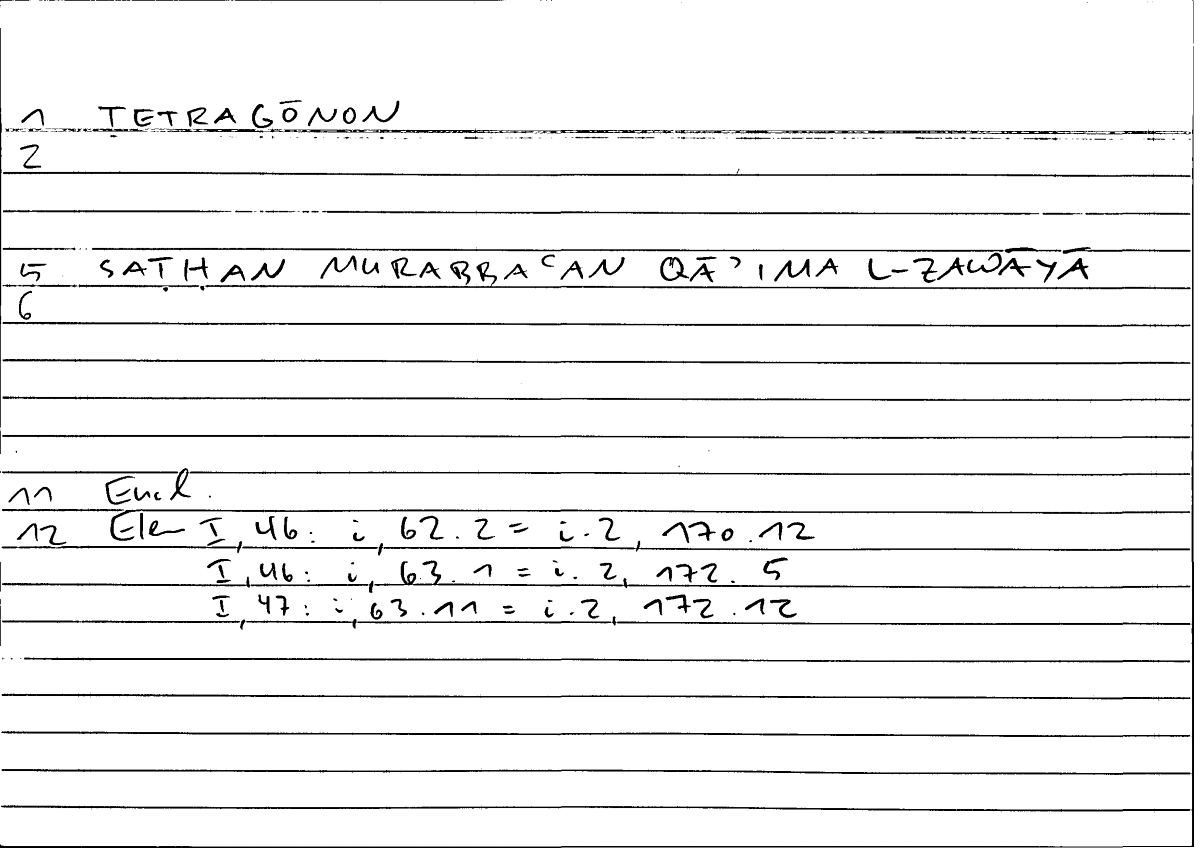 1 TETRAGŌNON
2
5 SAṬḤAN MURABBAʿAN QĀʾIMA L-ZAWĀYĀ
6
11 Eucl.
12 Elem I, 46: i, 62.2 = i.2, 170.12
I, 46: i, 63.1 = i.2, 172.5
I, 47: i, 63.11 = i.2, 172.12